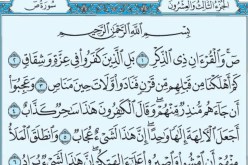 الجزء الثالث والعشرون سورة ص
بِسْمِ اللَّهِ الرَّحْمَٰنِ الرَّحِيمِ
صٓ وَالْقُرْءَانِ ذِي الذِّكْرِ ١ بَلِ الَّذِينَ كَفَرُوا فِي عِزَّةٍ وَشِقَاقٍ ٢
كَمْ أَهْلَكْنَا مِن قَبْلِهِم مِّن قَرْنٍ فَنَادَوا وَّلَاتَ حِينَ مَنَاصٍ ٣ وَعَجِبُوا
أَن جَاءَهُم مُّنذِرٌ مِّنْهُمْ وَقَالَ الْكَٰفِرُونَ هَٰذَا سَٰحِرٌ كَذَّابٌ ٤
أَجَعَلَ الْءَالِهَةَ إِلَٰهًا وَٰحِدًا إِنَّ هَٰذَا لَشَيْءٌ عُجَابٌ ٥ وَانطَلَقَ الْمَلَأُ